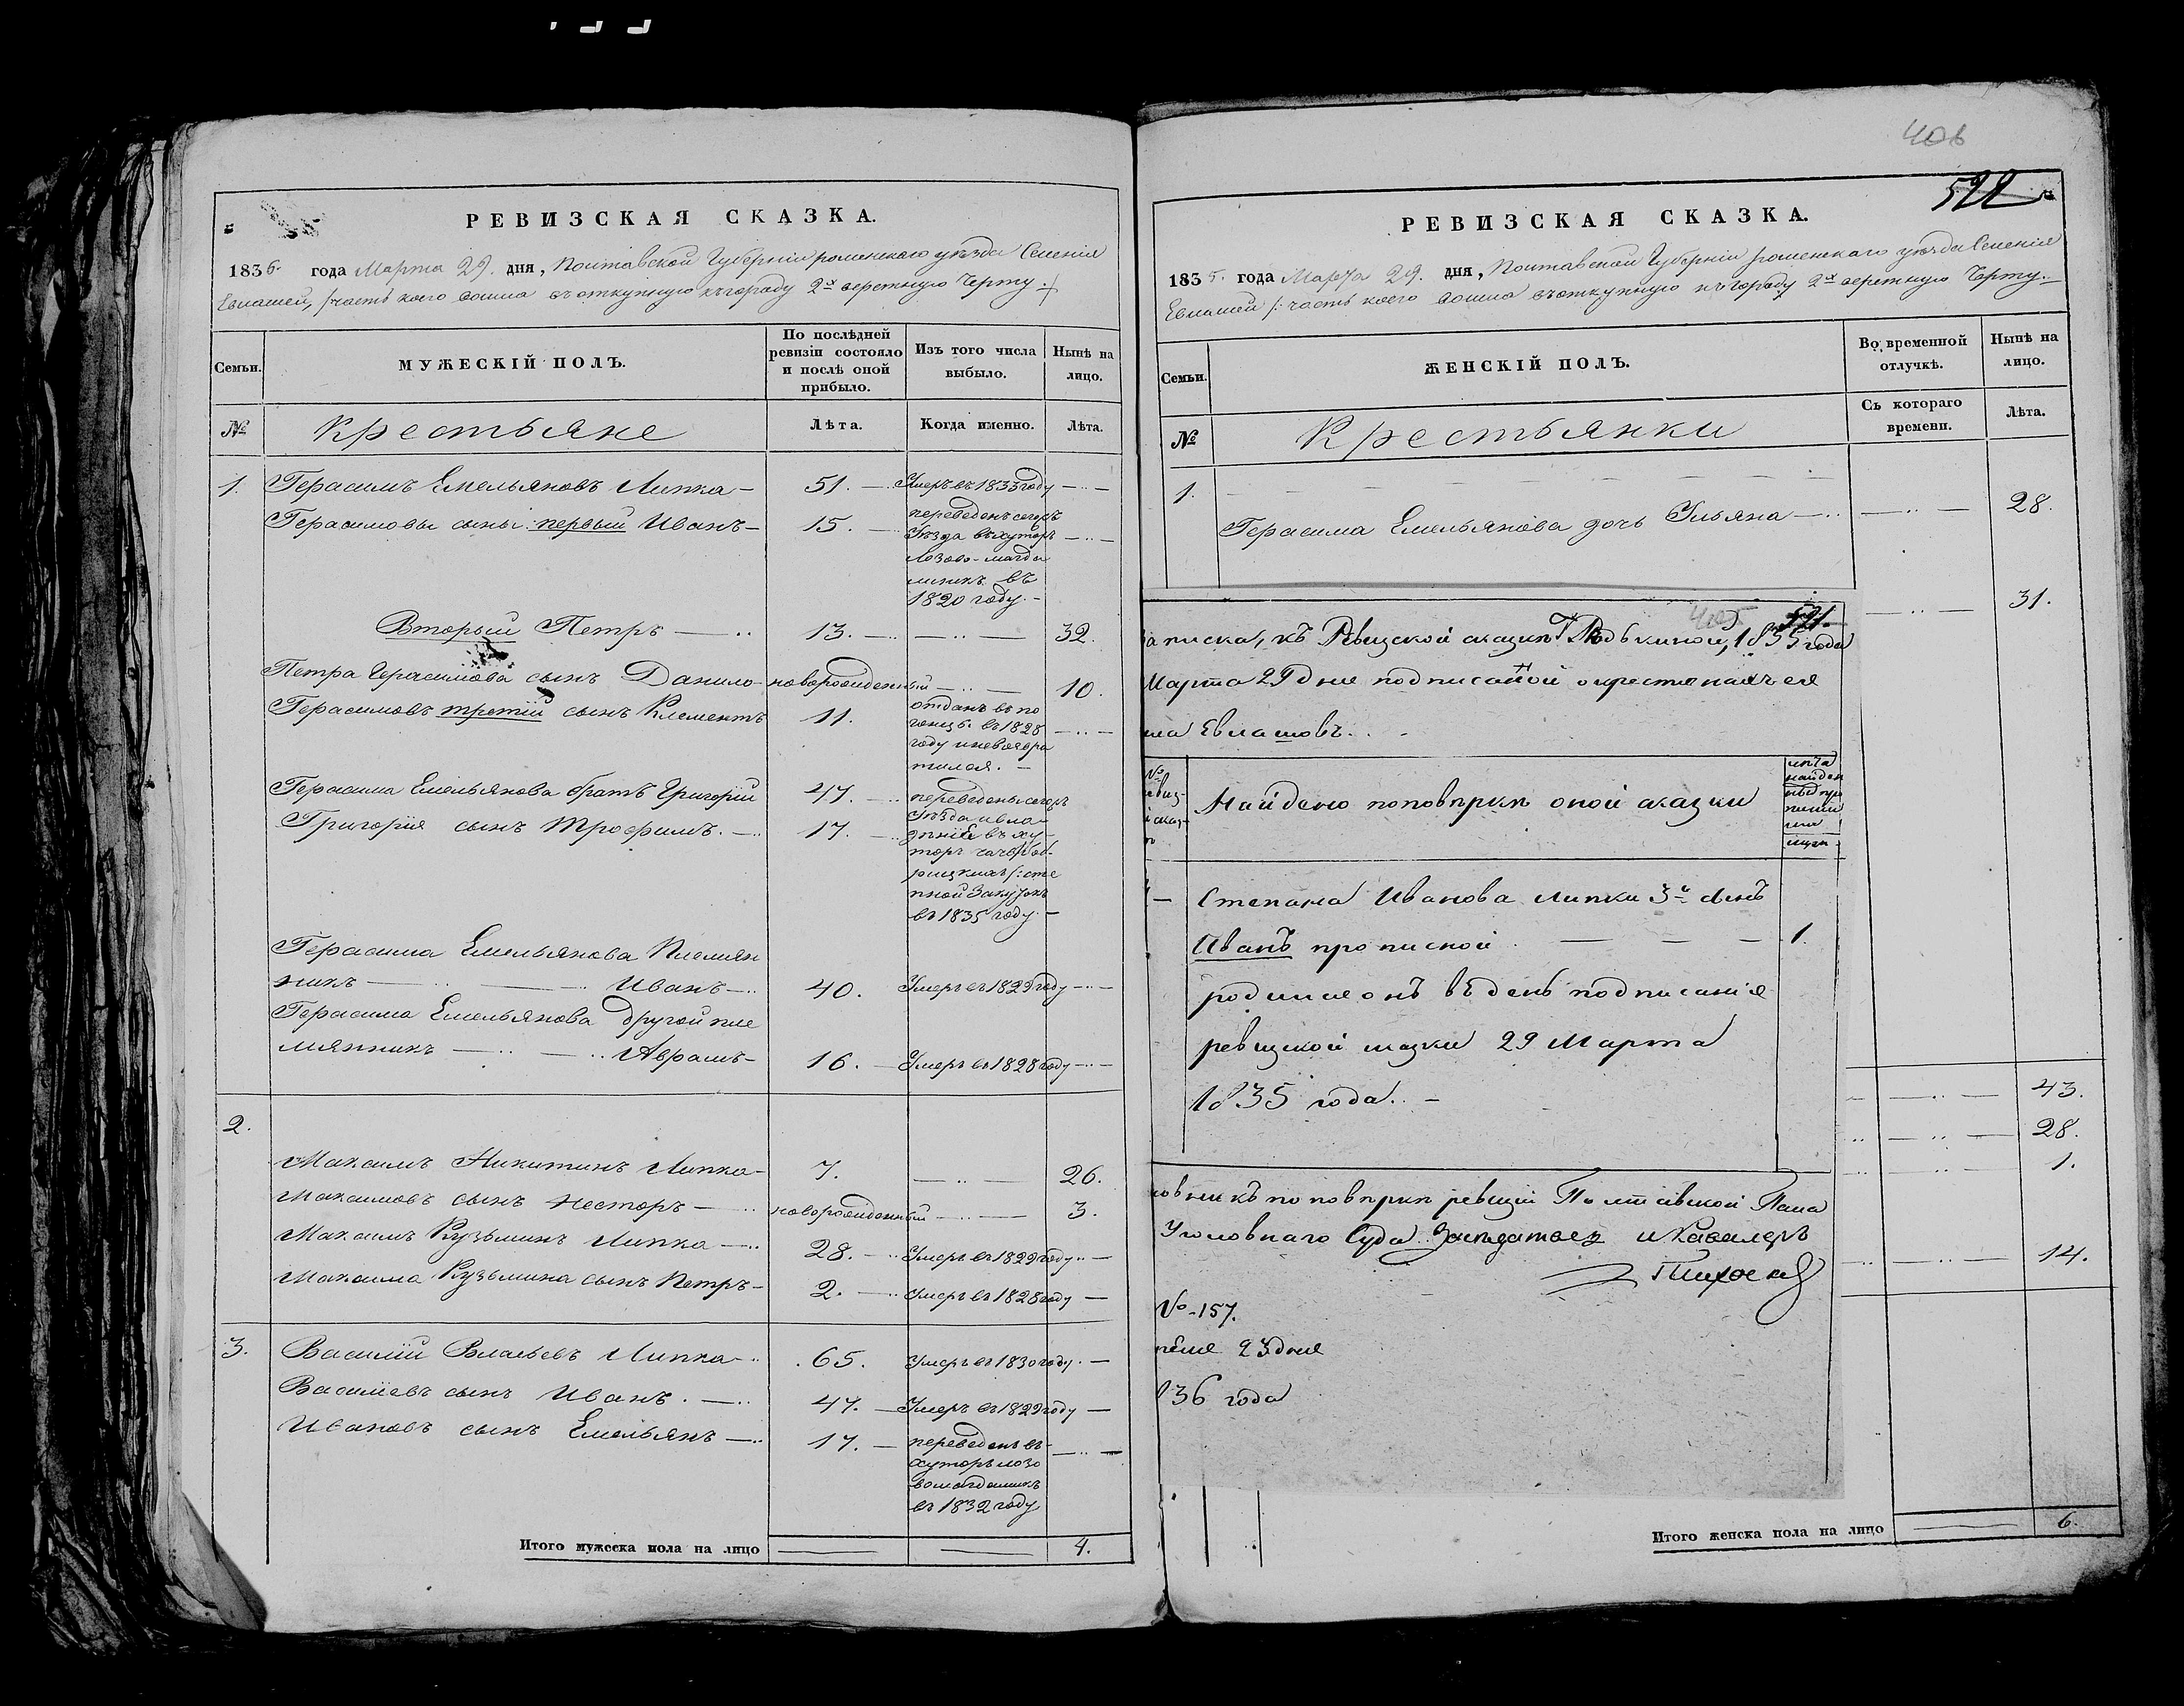 РЕВИЗСКАЯ СКАЗКА.
1835. года Марта 29. дня, Полтавской Губернии роменского уезда Селения
Евлашей, /:часть коего вошла въ откупную къ городу 2х верстную Черту:/
Семьи.
МУЖЕСКІЙ ПОЛЪ.
По послѣдней ревизіи состояло и послѣ оной прибыло.
Изъ того числа выбыло.
Нынѣ на лицо.
№
Крестьяне
Лѣта.
Когда именно.
Лѣта.
1. Герасимъ Емельяновъ Липка 51. Умеръ въ 1833 году
Герасимовы сыны: первый Иванъ 15. переведенъ сего
уезда въ хуторъ
Лозово-
въ
1820 году.
Вторый Петръ 13. 32.
Петра Герасимова сынъ Данило новорожденный 10.
Герасимовъ третій сынъ Климентъ 11. отданъ въ по
гонцы въ 1828
году и невозвра
тился.
Герасима Емельянова братъ Григорій 47. переведены сего
Григорія сынъ Трофимъ. 17. уезда
въ ху
торъ
въ 1835 году
Герасима Емельянова Племян
никъ Иванъ 40. Умеръ въ 1829 году
Герасима Емельянова другой пле
мянникъ Аврамъ 16. Умеръ въ 1828 году
2.
Максимъ Никитинъ Липка 7. 26.
Максимовъ сынъ Несторъ новорожденный 3.
Максимъ Кузьминъ Липка 28. Умеръ въ 1829 году
Максима Кузьмина сынъ Петръ 2. Умеръ въ 1828 году
3. Василій Власьевъ Липка 65. Умеръ въ 1830 году.
Васильевъ сынъ Иванъ. 47. Умеръ въ 1829 году
Ивановъ сынъ Емельянъ 17. переведенъ въ
хуторъ Лозо
въ 1832 году
Итого мужеска пола на лицо 4.
406
522
РЕВИЗСКАЯ СКАЗКА.
1835. года Марта 29. дня, Полтавской Губерніи роменскаго уезда Селенія
Евлашей /:часть коего вошла въ откупную къ городу 2х верстную Черту.
Семьи.
ЖЕНСКІЙ ПОЛЪ.
Во временной отлучкѣ.
Нынѣ на лицо.
№
Крестьянки
Съ котораго времени.
Лѣта.
1.
Герасима Емельянова дочь Ульяна 28.
31.
405 521.
записка, къ Ревизской сказки 1835 года
Марта 29 дня подписаной о крестьянахъ села
Евлашовъ.
Найдено по повѣрки оной сказки
Степана Иванова Липки 3й сынъ
Иванъ прописной 1.
родился онъ въ день подписанія
ревизской сказки 29 Марта
1835 года.
43.
28.
1.
по повѣрки ревизіи Полтавской Пала
Уголовнаго Суда Заседатель и Кавалеръ
14.
№ 157.
23 дня
136 года
Итого женска пола на лицо 6.